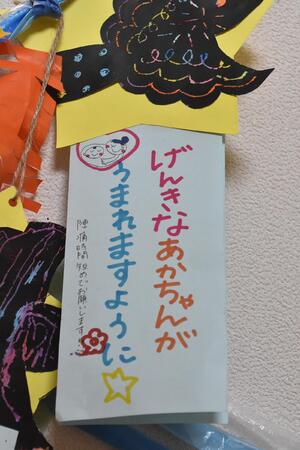 げんきなあかちゃんが
うまれますように
陣痛時間短めでお願いします!!